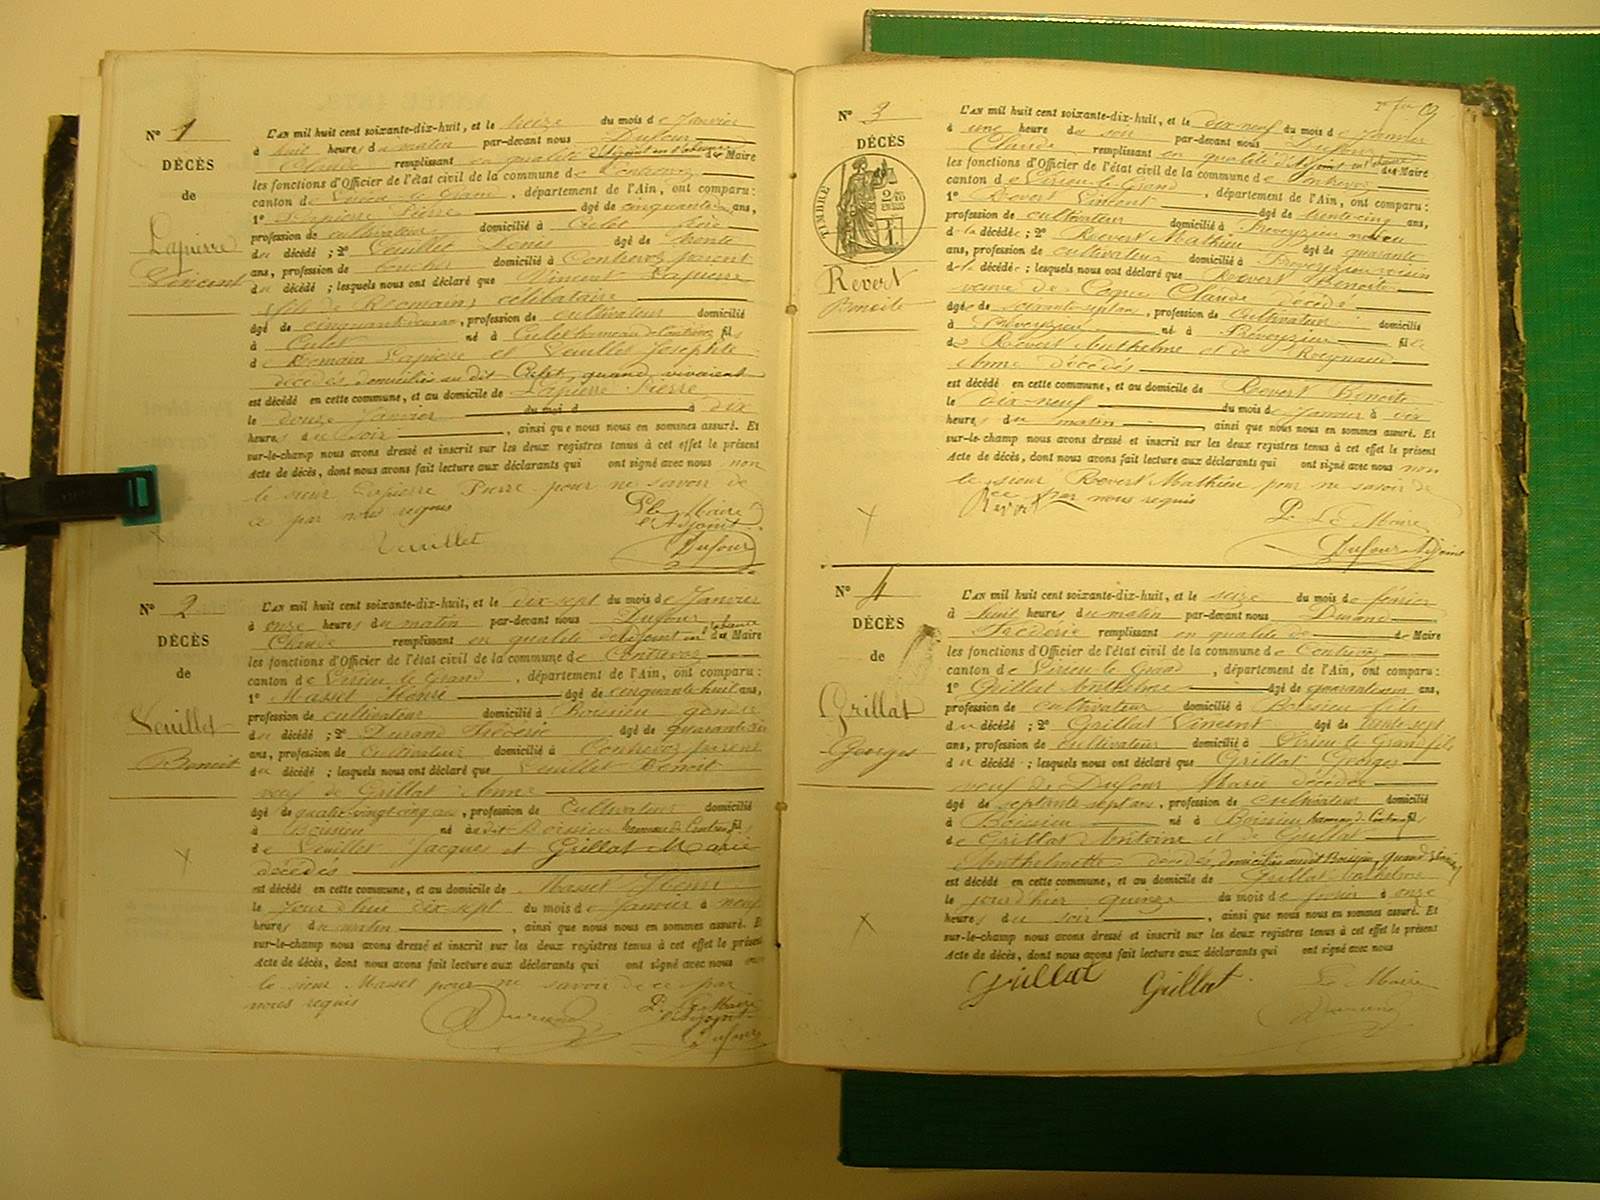 N° 1
DÉCÈS
de
Lapierre
Vincent
L'AN mil huit cent soixante-dix-huit, et le treize du mois de Janvier
à huit heures du matin par-devant nous Dufour
Claude remplissant en qualité d'adjoint en l'absence du Maire
les fonctions d'Officier de l'état civil de la commune de Contrevoz
canton de Virieu le Grand, département de l'Ain, ont comparu :
1° Lapierre Pierre âgé de cinquante ans,
profession de cultivateur domicilié à Culet frère
du décédé ; 2° Veuillet Denis âgé de trente
ans, profession de domicilié à Contrevoz parent
du décédé ; lesquels nous ont déclaré que Vincent Lapierre
fils de Romain, célibataire
âgé de cinquante ans, profession de cultivateur domicilié
à Culet né à Culet hameau de Contrevoz fils
de Romain Lapierre et Veuillet Josephte
décédés domiciliés au dit Culet, quand vivaient
est décédé en cette commune, et au domicile de Lapierre Pierre
le douze Janvier du mois d à dix
heures du soir, ainsi que nous nous en sommes assuré. Et
sur-le-champ nous avons dressé et inscrit sur les deux registres tenus à cet effet le présent
Acte de décès, dont nous avons fait lecture aux déclarants qui ont signé avec nous non
le sieur Lapierre Pierre pour ne savoir de
ce par nous requis
Veuillet
P. le Maire
l'Adjoint
Dufour
N° 2
DÉCÈS
de
Veuillet
Benoit
L'AN mil huit cent soixante-dix-huit, et le dix-sept du mois de Janvier
à onze heures du matin par-devant nous Dufour
Claude remplissant en qualité d'adjoint en l'absence du Maire
les fonctions d'Officier de l'état civil de la commune de Contrevoz
canton de Virieu le Grand, département de l'Ain, ont comparu :
1° Masset Henri âgé de cinquante huit ans,
profession de cultivateur domicilié à Boissieu gendre
du décédé ; 2° Durand Frédéric âgé de quarante six
ans, profession de cultivateur domicilié à Contrevoz parent
du décédé ; lesquels nous ont déclaré que Veuillet Benoit
veuf de Grillat Anne
âgé de quatre vingt cinq ans, profession de cultivateur domicilié
à Boissieu né au dit Boissieu hameau de Contrevoz fils
de Veuillet Jacques et Grillat Marie
décédés
est décédé en cette commune, et au domicile de Masset Henri
le jour d'hui dix-sept du mois de Janvier à neuf
heures du matin, ainsi que nous nous en sommes assuré. Et
sur-le-champ nous avons dressé et inscrit sur les deux registres tenus à cet effet le présent
Acte de décès, dont nous avons fait lecture aux déclarants qui ont signé avec nous non
le sieur Masset pour ne savoir de ce par
nous requis
Durand
P. Le Maire
l'Adjoint
Dufour
N° 3
DÉCÈS
TIMBRE
Revert
Benoite
L'AN mil huit cent soixante-dix-huit, et le dix-neuf du mois de Janvier
à une heure du soir par-devant nous Dufour
Claude remplissant en qualité d'Adjoint en l'absence du Maire
les fonctions d'Officier de l'état civil de la commune de Contrevoz
canton de Virieu-le-Grand, département de l'Ain, ont comparu :
1° Revert Vincent âgé de trente-cinq ans,
profession de cultivateur domicilié à Preveyzieu neveu
d la décédée ; 2° Revert Mathieu âgé de quarante
ans, profession de cultivateur domicilié à Preveyzieu voisin
d la décédée ; lesquels nous ont déclaré que Revert Benoite
veuve de Claude décédé
âgée de soixante-sept ans, profession de cultivateur domicilié
à Preveyzieu né à Preveyzieu fille
de Revert Anthelme et de Reynaud
Anne décédés
est décédé en cette commune, et au domicile de Revert Benoite
le dix-neuf du mois de Janvier à dix
heures du matin, ainsi que nous nous en sommes assuré. Et
sur-le-champ nous avons dressé et inscrit sur les deux registres tenus à cet effet le présent
Acte de décès, dont nous avons fait lecture aux déclarants qui ont signé avec nous non
le sieur Revert Mathieu pour ne savoir de
ce par nous requis
Revert
P. Le Maire
Dufour Adjoint
N° 4
DÉCÈS
de
Grillat
Georges
L'AN mil huit cent soixante-dix-huit, et le seize du mois de février
à huit heures du matin par-devant nous Durand
Fréderic remplissant en qualité de Maire
les fonctions d'Officier de l'état civil de la commune de Contrevoz
canton de Virieu le Grand, département de l'Ain, ont comparu :
1° Grillat Anthelme âgé de quarante un ans,
profession de cultivateur domicilié à Boissieu fils
du décédé ; 2° Grillat Vincent âgé de trente sept
ans, profession de cultivateur domicilié à Virieu le Grand fils
du décédé ; lesquels nous ont déclaré que Grillat Georges
veuf de Dufour Marie décédée
âgé de septante sept ans, profession de cultivateur domicilié
à Boissieu né à Boissieu hameau de Contrevoz fils
de Grillat Antoine et de Grillat
Anthelmette décédés, domiciliés au dit Boissieu, quand vivaient
est décédé en cette commune, et au domicile de Grillat Anthelme
le jour d'hier quinze du mois de février à onze
heures du soir, ainsi que nous nous en sommes assuré. Et
sur-le-champ nous avons dressé et inscrit sur les deux registres tenus à cet effet le présent
Acte de décès, dont nous avons fait lecture aux déclarants qui ont signé avec nous
Grillat Grillat
Le Maire
Durand